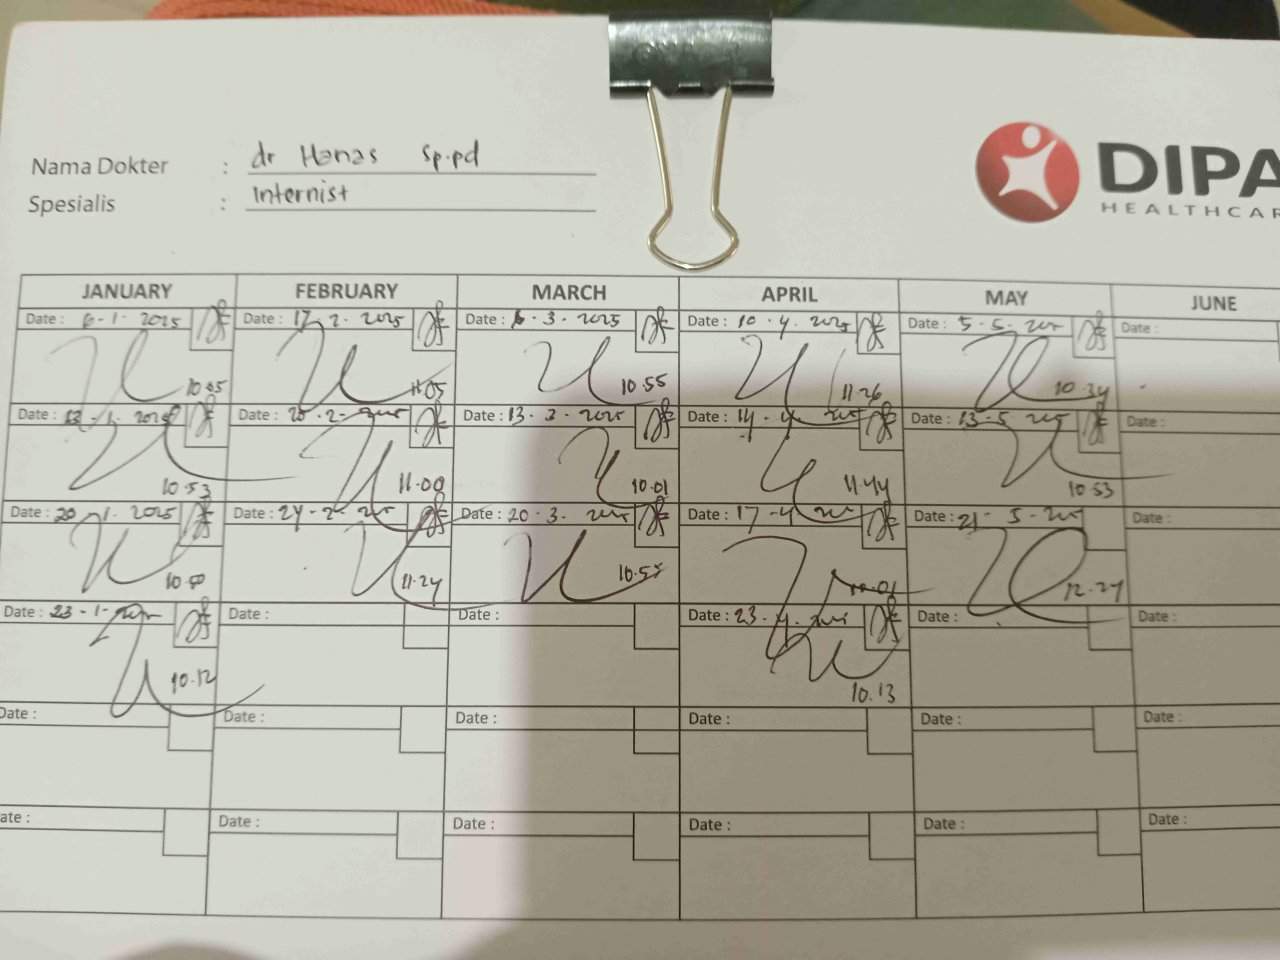 Nama Dokter : dr Hanas Sp.pd
Spesialis : Internist
DIPA
HEALTHCAR
JANUARY FEBRUARY MARCH APRIL MAY JUNE
Date : 6-1-2025 Date : 17-2-2025 Date : 6-3-2025 Date : 10-4-2025 Date : 5-5-2025 Date :
10.05 11.05 10.55 11.26 10.34
Date : 13-1-2025 Date : 20-2-2025 Date : 13-3-2025 Date : 14-4-2025 Date : 13-5-2025 Date :
10.53 11.00 10.01 11.44 10.53
Date : 20-1-2025 Date : 24-2-2025 Date : 20-3-2025 Date : 17-4-2025 Date : 21-5-2025 Date :
11.24 10.55 12.27
Date : 23-1-2025 Date : Date : Date : 23-4-2025 Date : Date :
10.12 10.13
Date : Date : Date : Date : Date : Date :
ate : Date : Date : Date : Date : Date :